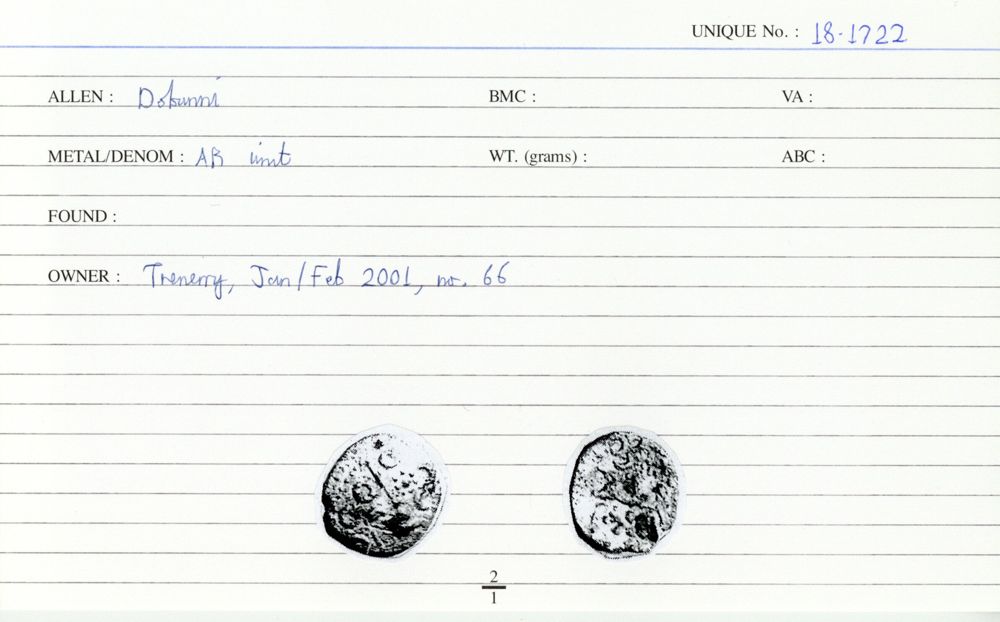 UNIQUE No. : 18-1722
ALLEN : Dobunni BMC : VA :
METAL/DENOM : AR unit WT. (grams) : ABC :
FOUND :
OWNER : Trenerry, Jan/Feb 2001, no. 66
2
1